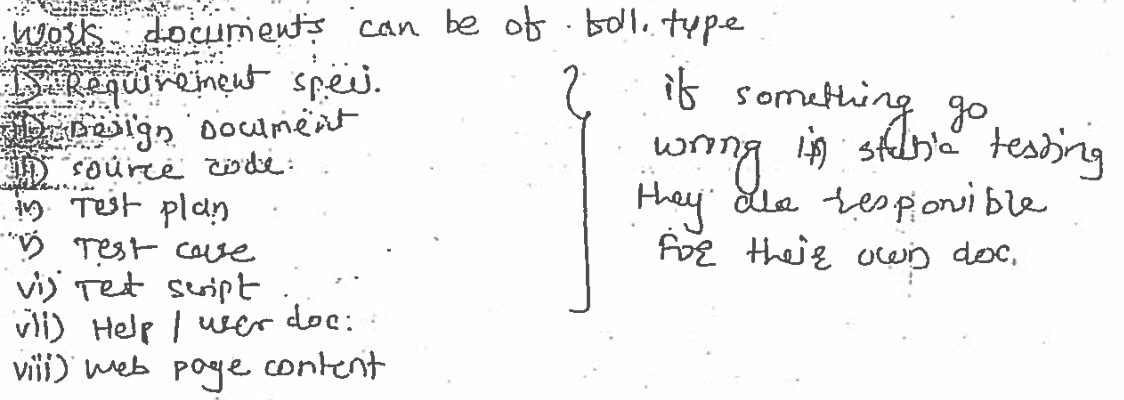 Work documents can be of foll. type
i) Requirement speci.
ii) Design Document
iii) source code.
iv) Test plan
v) Test case
vi) Test script
vii) Help / user doc.
viii) web page content
if something go
wrong in static testing
they are responsible
for their own doc.